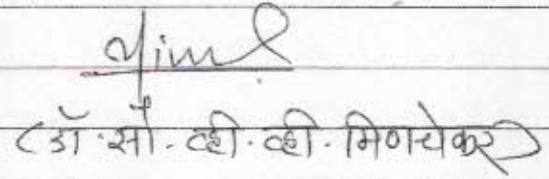 (डॉ. सौ. व्ही. व्ही. मिणचेकर)